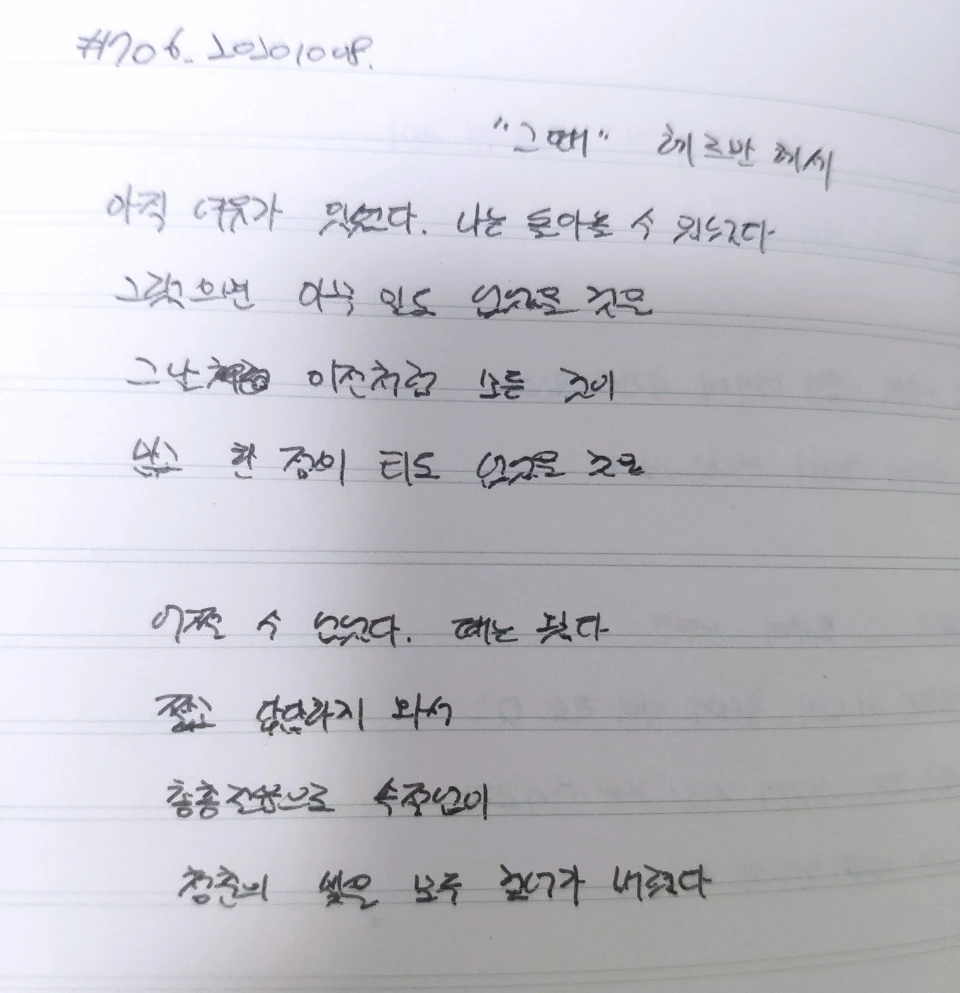 #706. 20201008.
"그때" 헤르만 헤세
아직 여유가 있었다. 나는 돌아올 수 있었다
그랬으면 아무 일도 없었을 것을
그 날 이전처럼 모든 것이
맑고 한 점의 티도 없었을 것을
어쩔 수 없었다. 때는 왔다
짧고 와서
총총걸음으로 속절없이
청춘의 모두